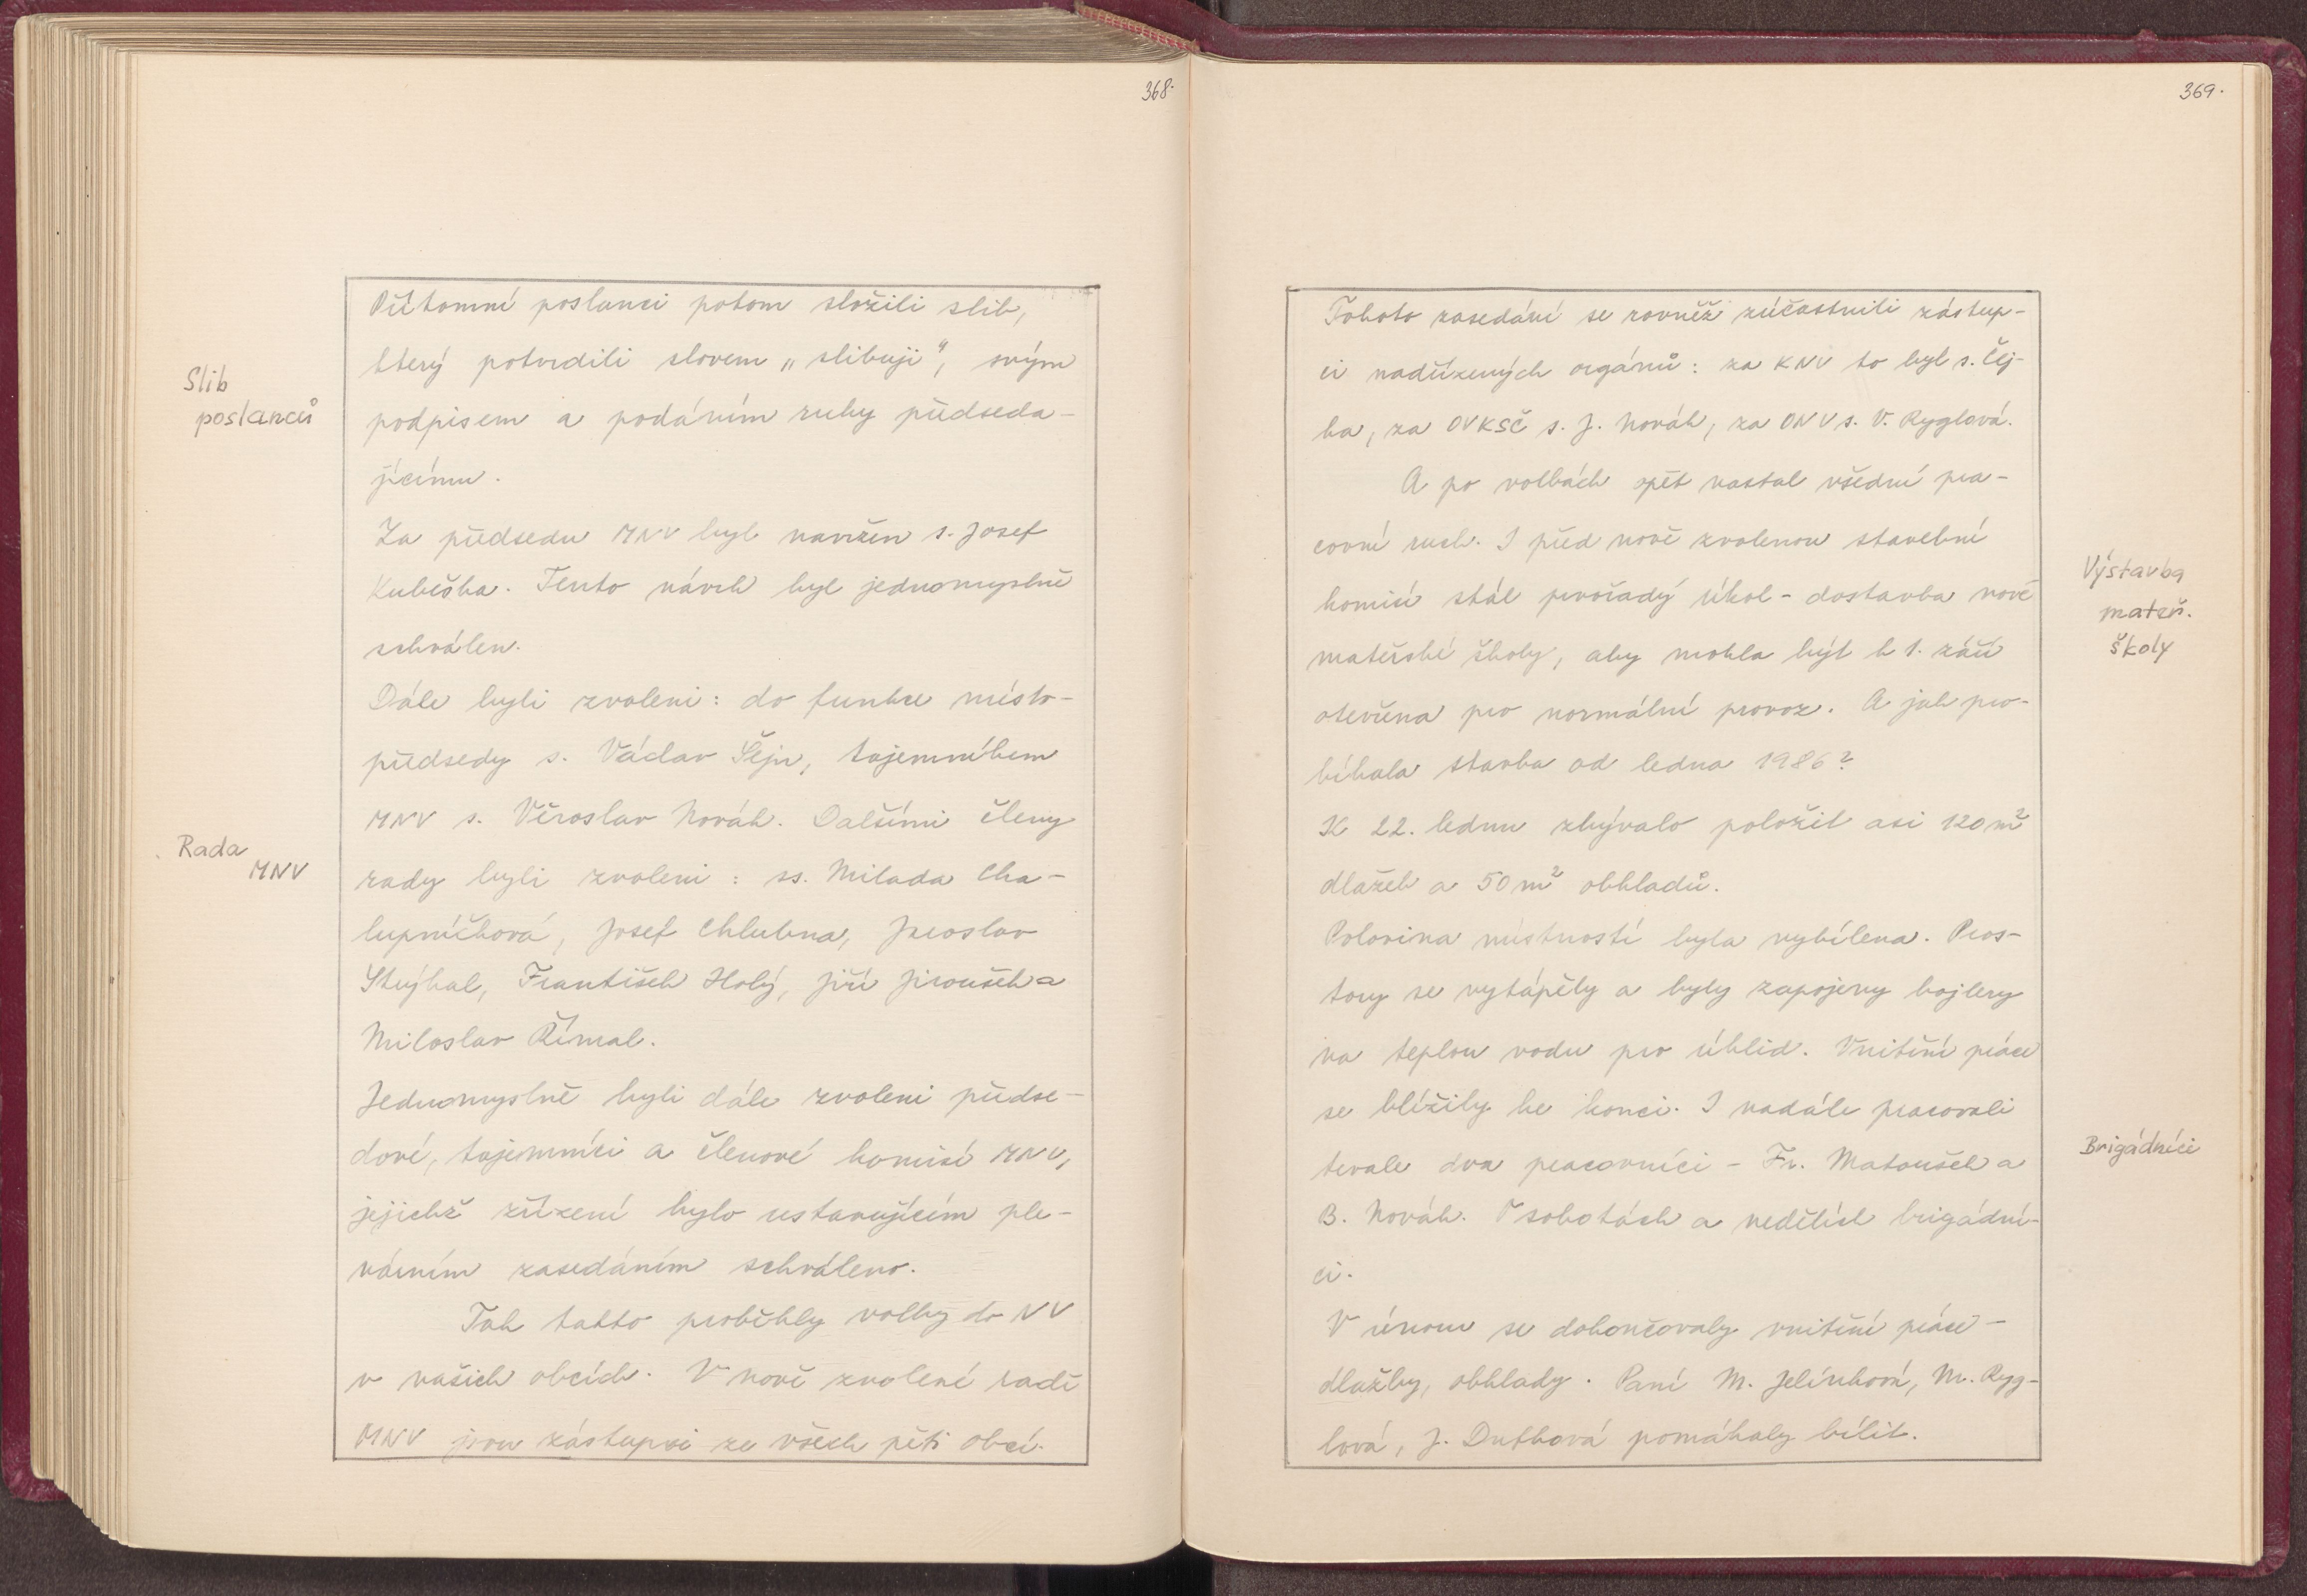 368.
Slib
poslanců
Rada
MNV
Přítomní poslanci potom složili slib,
který potvrdili slovem „slibuji", svým
podpisem a podáním ruky předseda-
jícímu.
Za předsedu MNV byl navržen s. Josef
Kubečka. Tento návrh byl jednomyslně
schválen.
Dále byli zvoleni: do funkce místo-
předsedy s. Václav Šejn, tajemníkem
MNV s. Věroslav Novák. Dalšími členy
rady byli zvoleni: ss. Milada Cha-
lupníčková, Josef Chlubna, Jaroslav
Stýhal, František Holý, Jiří Jiroušek a
Miloslav Římal.
Jednomyslně byli dále zvoleni předse-
dové, tajemníci a členové komisí MNV,
jejichž zřízení bylo ustavujícím ple-
nárním zasedáním schváleno.
Tak takto proběhly volby do NV
v našich obcích. V nově zvolené radě
MNV jsou zástupci ze všech pěti obcí.
369.
Tohoto zasedání se rovněž zúčastnili zástup-
ci nadřízených orgánů: za KNV to byl s. Čej-
ka, za OVKSČ s. J. Novák, za ONV s. V. Ryglová.
A po volbách opět nastal všední pra-
covní ruch. I před nově zvolenou stavební
komisí stál prvořadý úkol - dostavba nové
mateřské školy, aby mohla být k 1. září
otevřena pro normální provoz. A jak pro-
bíhala stavba od ledna 1986?
K 22. lednu zbývalo položit asi 120 m²
dlažeb a 50 m² obkladů.
Polovina místností byla vybílena. Pros-
tory se vytápěly a byly zapojeny bojlery
na teplou vodu pro úklid. Vnitřní práce
se blížily ke konci. I nadále pracovali
trvale dva pracovníci - Fr. Matoušek a
B. Novák. V sobotách a nedělích brigádní-
ci.
V únoru se dokončovaly vnitřní práce -
dlažby, obklady. Paní M. Jelínková, M. Ryg-
lová, J. Dutková pomáhaly bílit.
Výstavba
mateř.
školy
Brigádníci